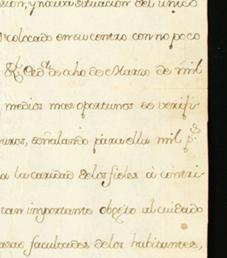 sion, y nociva situacion del unico
colocado en su centro con no poco
Rl. Ordn. de ocho de Marzo de mil
medios mas oportunos se verifi-
muros, señalando para ella mil p.s
a la caridad de los fieles á contri-
tan importante objeto al cuidado
asas facultades de los habitantes,